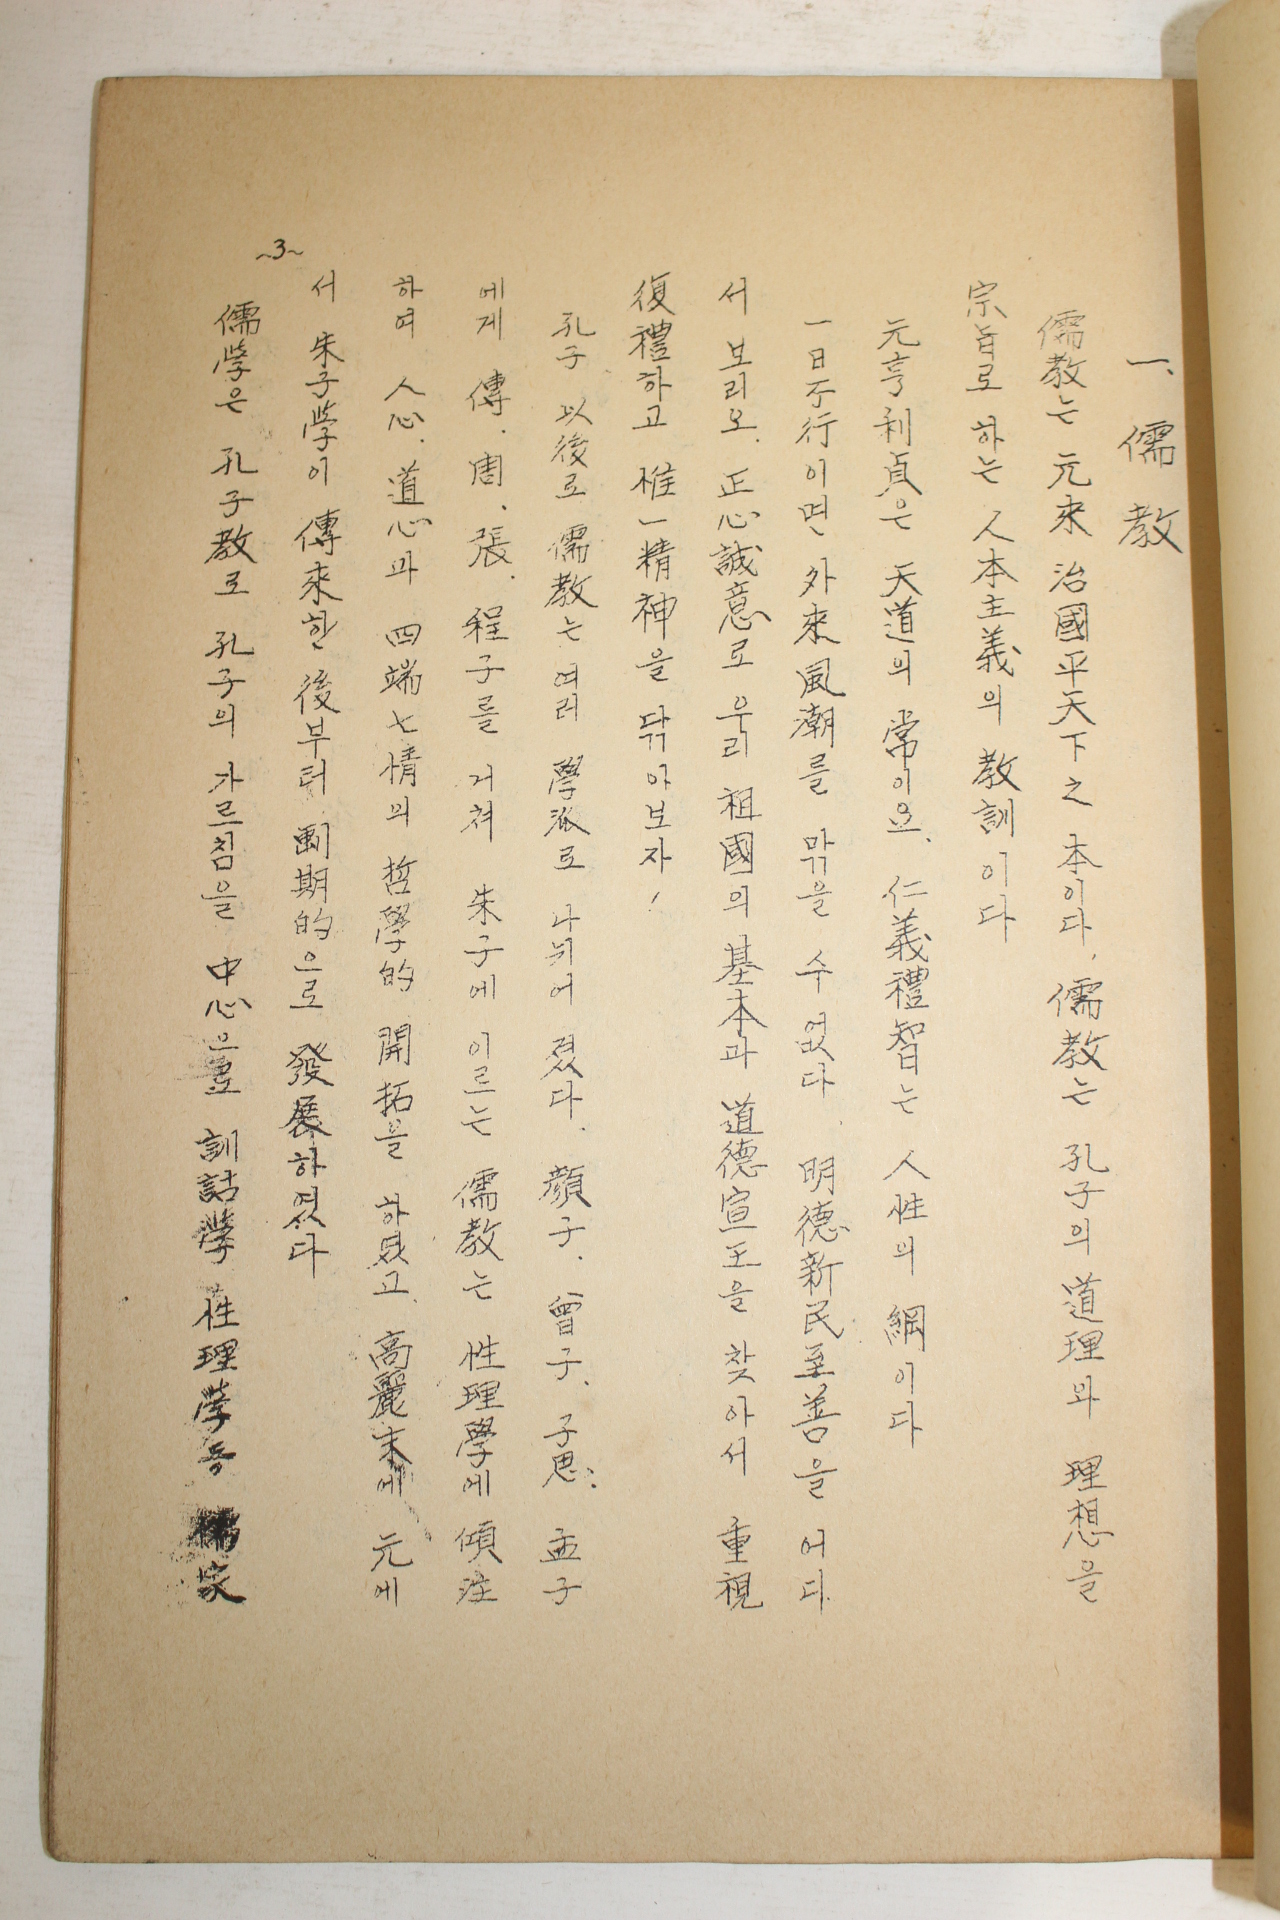 一、儒教
儒教는 元來 治國平天下之 本이다, 儒教는 孔子의 道理와 理想을
宗旨로 하는 人本主義의 教訓이다
元亨利貞은 天道의 常이요, 仁義禮智는 人性의 綱이다
一日不行이면 外來風潮를 막을 수 없다. 明德新民至善을 어디
서 보리오. 正心誠意로 우리 祖國의 基本과 道德宣王을 찾아서 重視
復禮하고 惟一精神을 닦아보자!
孔子 以後로 儒教는 여러 學派로 나뉘어 졌다. 顔子. 曾子. 子思. 孟子
에게 傳. 周. 張. 程子를 거쳐 朱子에 이르는 儒教는 性理學에 傾注
하여 人心. 道心과 四端七情의 哲學的 開拓을 하였고. 高麗末에 元에
서 朱子學이 傳來한 後부터 劃期的으로 發展하였다
~3~
儒學은 孔子教로 孔子의 가르침을 中心으로 訓詁學 性理學等 儒家